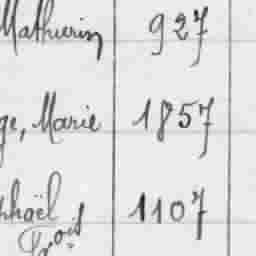 Mathurin 927
ge, Marie 1857
phaël 1107